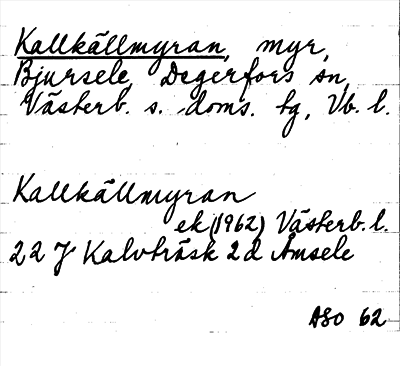 Kallkällmyran, myr,
Bjursele, Degerfors sn,
Västerb. s. doms. tg, Vb. l.
Kallkällmyran
ek (1962) Västerb. l.
22 J Kalvträsk 2d Åmsele
ASO 62